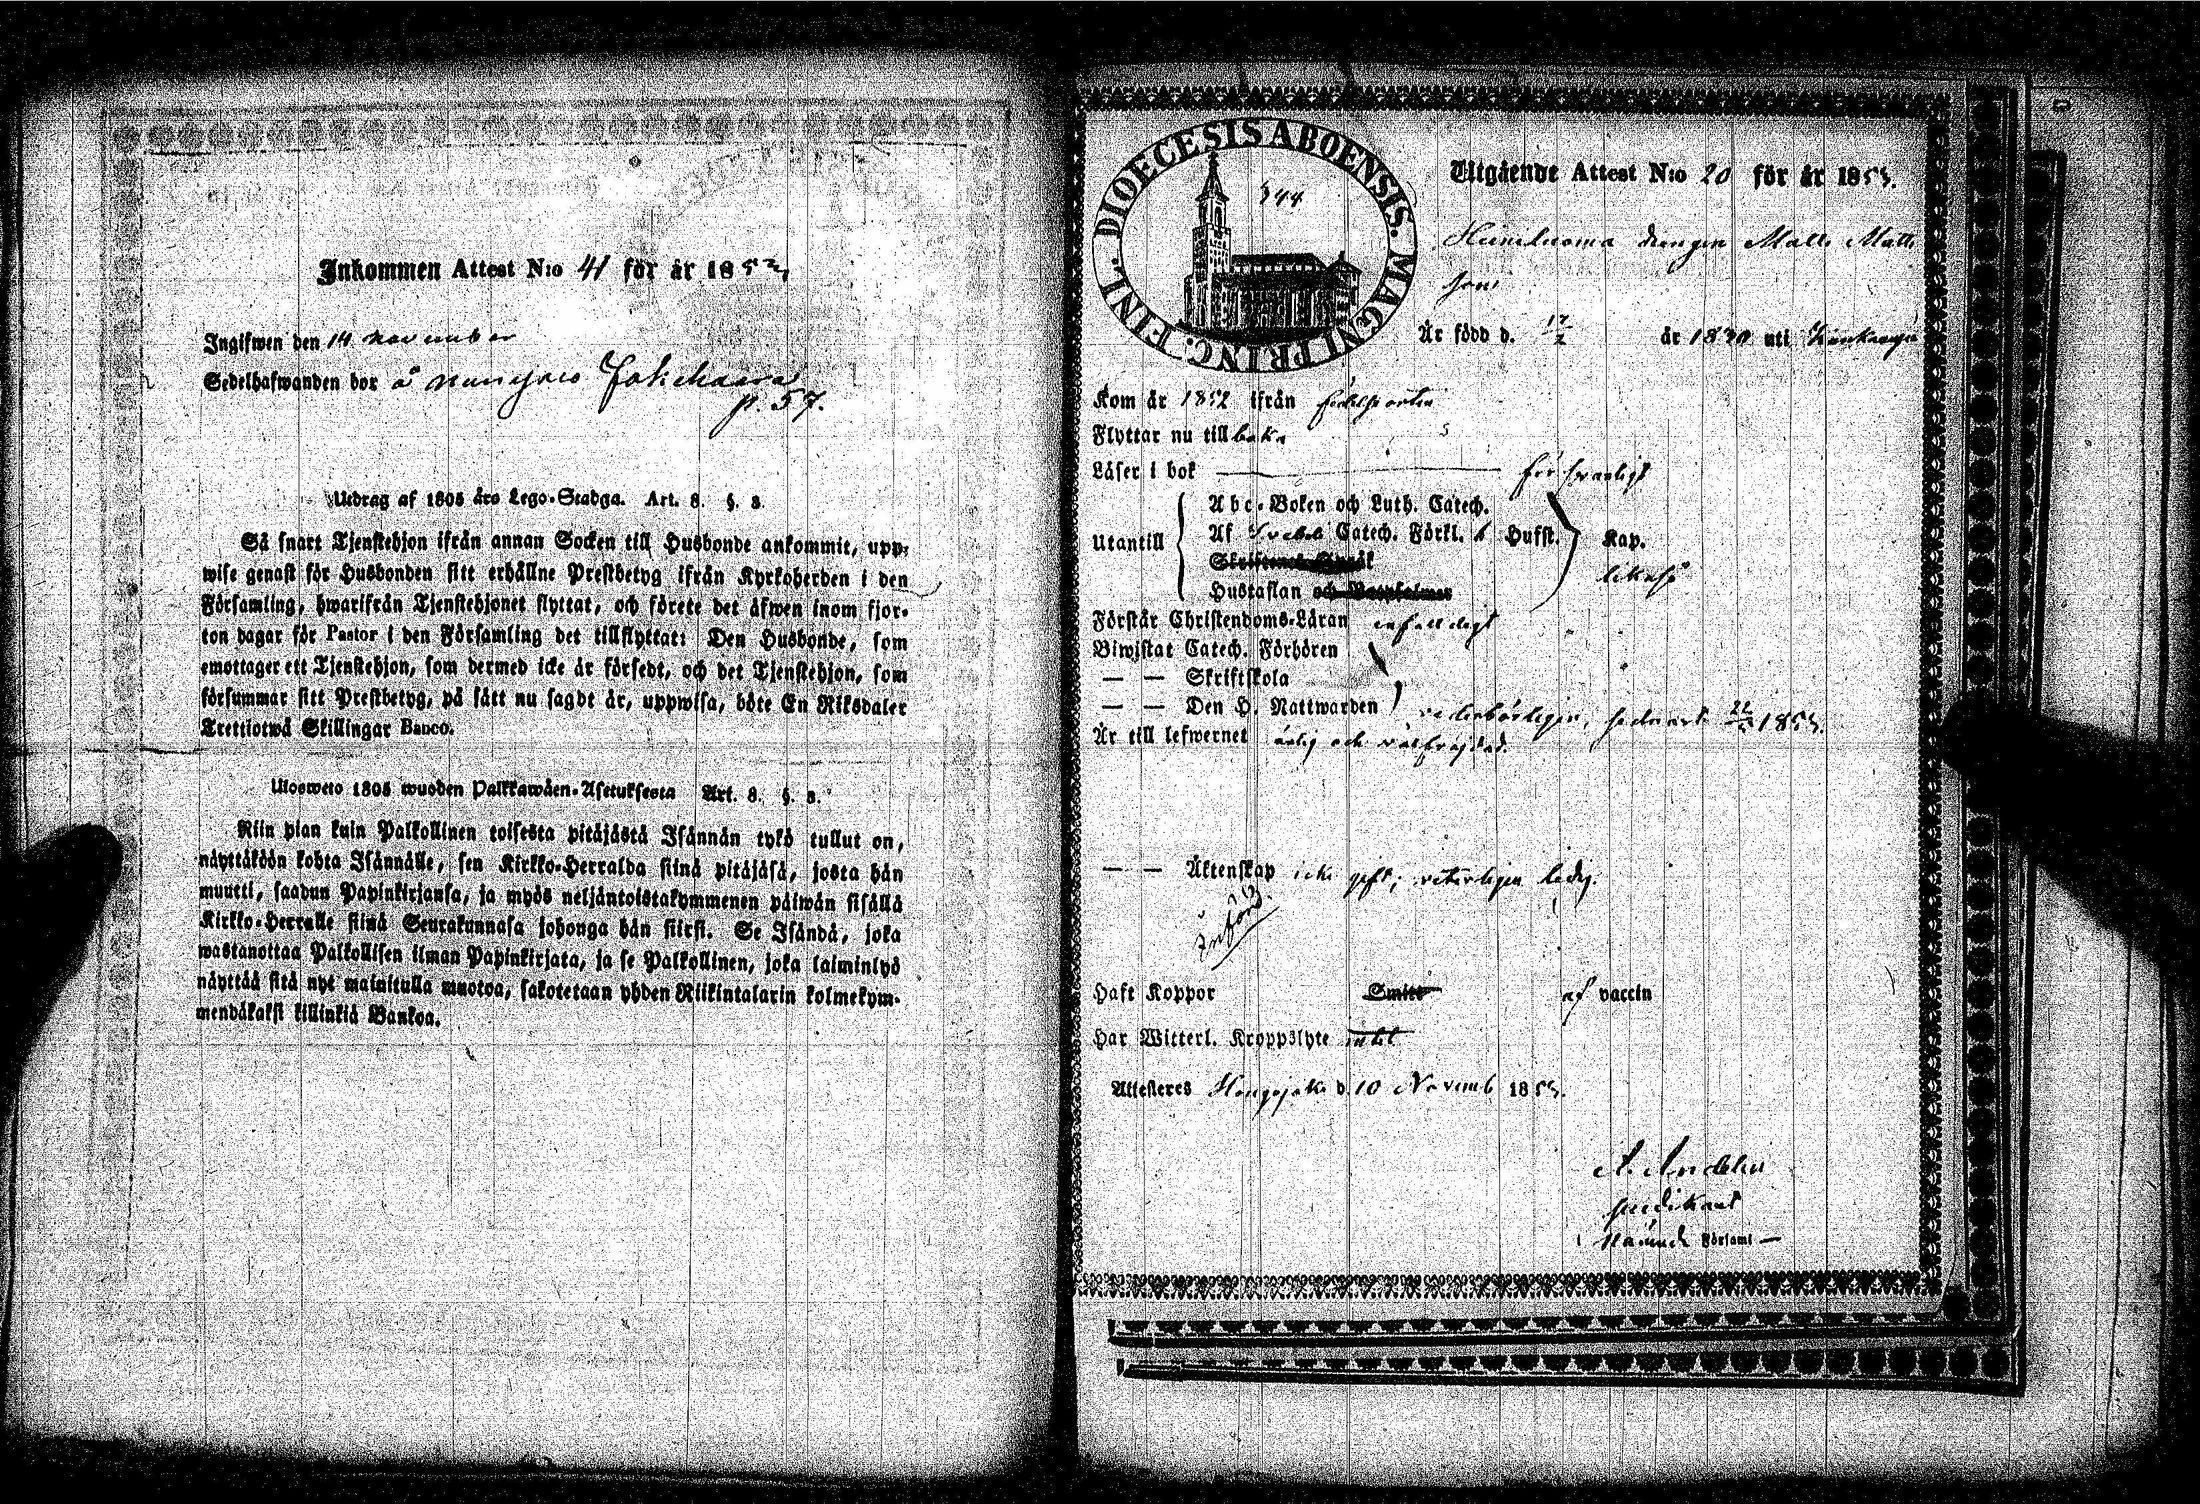 Inkommen Attest N:o 41 för år 1853
Ingifwen den 14 november
Sedelhafwanden bor å
p. 57.
Utdrag af 1805 års Lego-Stadga. Art. 8. §. 3.
Så snart Tjenstehjon ifrån annan Socken till Husbonde ankommit, upp-
wise genast för Husbonden sitt erhållne Prestbetyg ifrån Kyrkoherden i den
Församling, hwarifrån Tjenstehjonet flyttat, och förete det äfwen inom fjor-
ton dagar för Pastor i den Församling det tillflyttat: Den Husbonde, som
emottager ett Tjenstehjon, som dermed icke är försedt, och det Tjenstehjon, som
försummar sitt Prestbetyg, på sätt nu sagdt är, uppwisa, böte En Riksdaler
Trettiotwå Skillingar Banco.
Ulosweto 1805 wuoden Palkkawäen-Asetuksesta Art. 8. §. 3.
Niin pian kuin Palkollinen toisesta pitäjästä Isännän tykö tullut on,
näyttäköön kohta Isännälle, sen Kirkko-Herralda siinä pitäjäsä, josta hän
muutti, saadun Papinkirjansa, ja myös neljäntoistakymmenen päiwän sisällä
Kirkko-Herralle siinä Seurakunnasa johonga hän siirsi. Se Isändä, joka
wastanottaa Palkollisen ilman Papinkirjata, ja se Palkollinen, joka laiminlyö
näyttää sitä nyt mainitulla muotoa, sakotetaan yhden Riikintalarin kolmekym-
mendäkaksi killinkiä Bankoa.
DIOECESIS ABOENSIS. MAGNI PRINC. FINL.
344
Utgående Attest N:o 20 för år 1853.
drängen Matts Matts
son
Är född d. 17/2 år 1830 uti
Kom år 1852 ifrån födelseorten
Flyttar nu tillbaka
Läser i bok förswarligt
Utantill
Abc-Boken och Luth. Catech.
Af Svebel. Catech. Förkl. 6 Hufst. Kap.
Skriftenes Språk
Hustaflan och Botpsalmer
Förstår Christendoms-Läran enfaldigt
Biwistat Catech. Förhören
— — Skriftskola
— — Den H. Nattwarden vederbörligen, sednast 1853.
Är till lefwernet ärlig och välfrejdad.
— — Äktenskap icke gift, veterligen ledig.
Införd.
Haft Koppor Smitt af vaccin
Har Witterl. Kroppslyte intet
Attesteres Hongojoki d. 10 Novemb 1853.
predikant
i nämnde Församl —